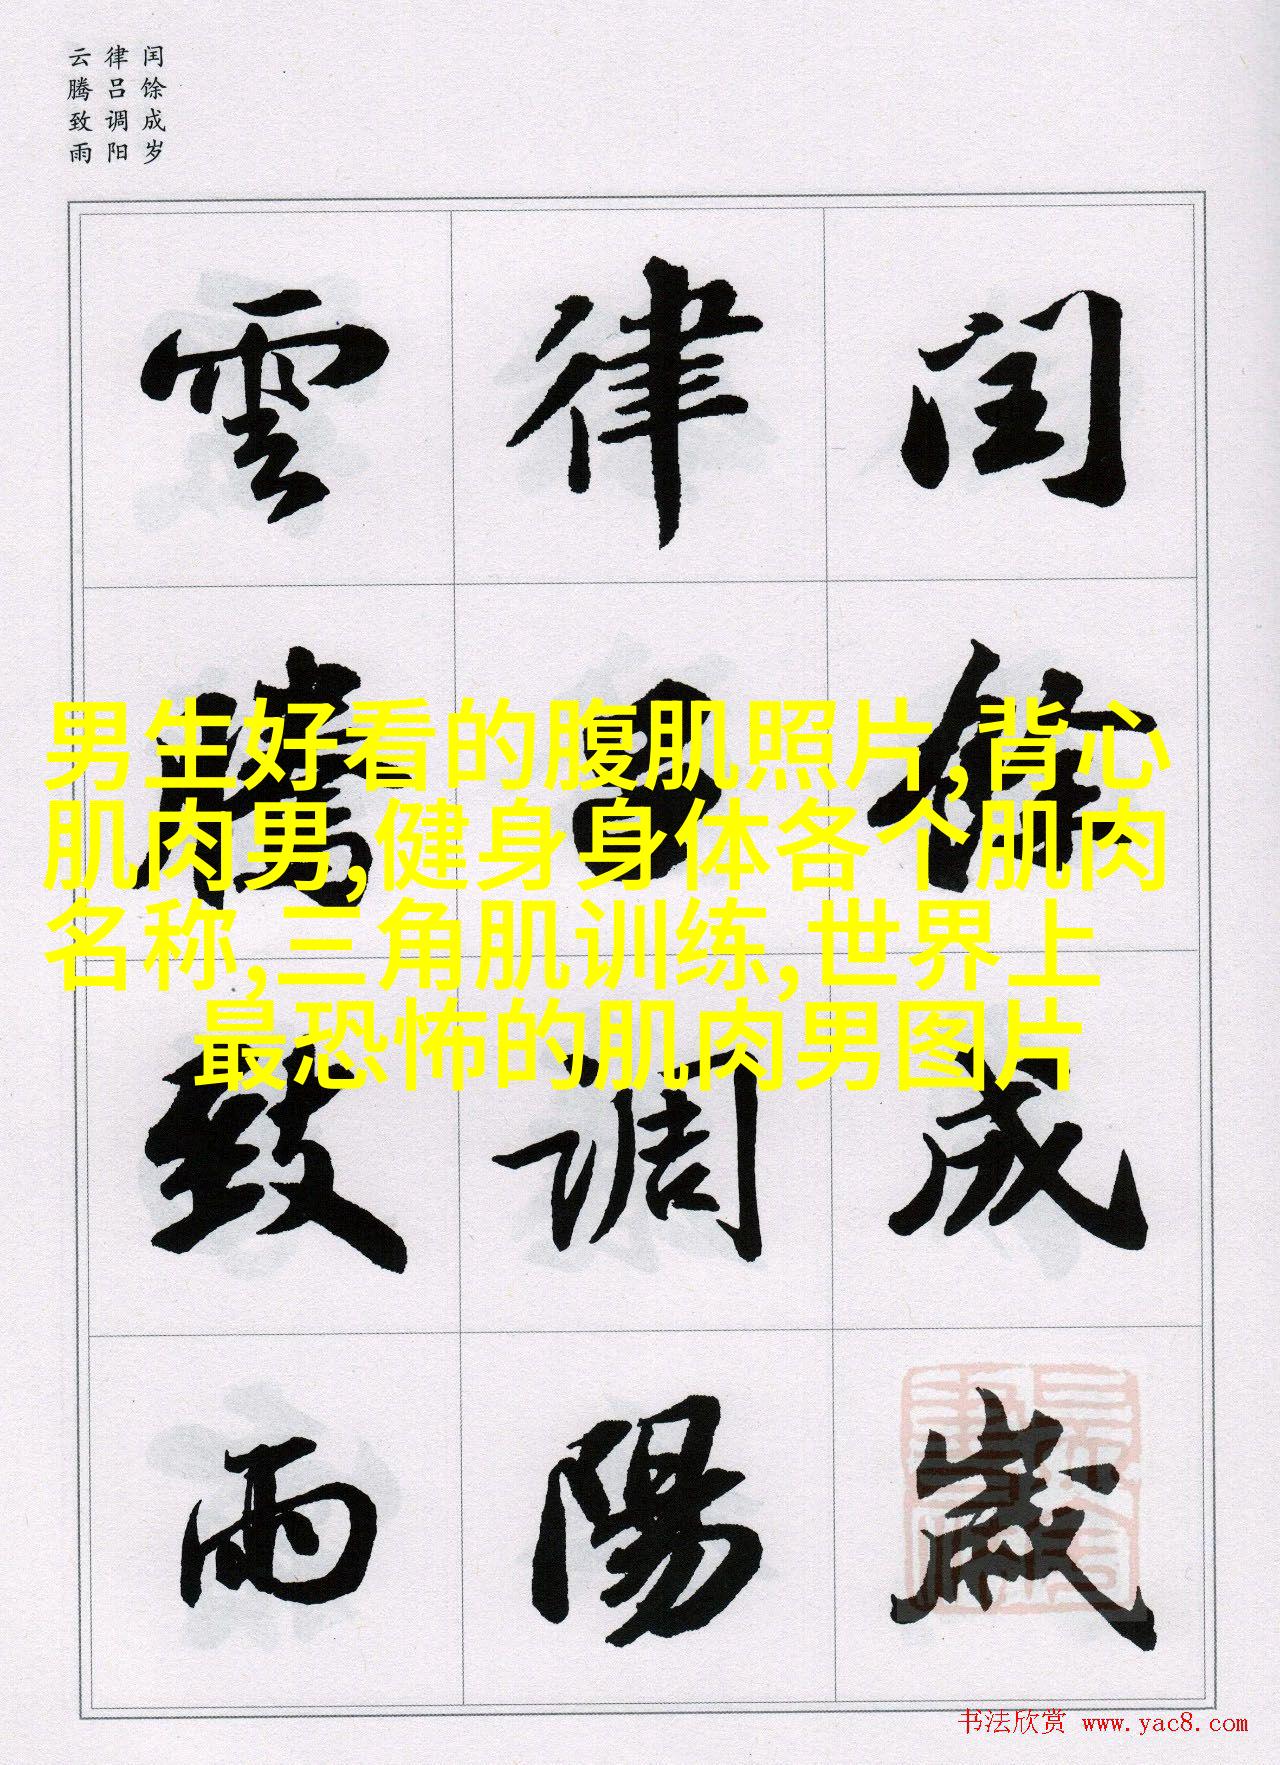 闰馀成岁
律吕调阳
云腾致雨
闰馀成歲
律吕调陽
雲腾致雨
男生好看的腹肌照片,背心
肌肉男,健身身体各个肌肉
名称,三角肌训练,世界上
最恐怖的肌肉男图片
书法欣赏 www.yac8.com